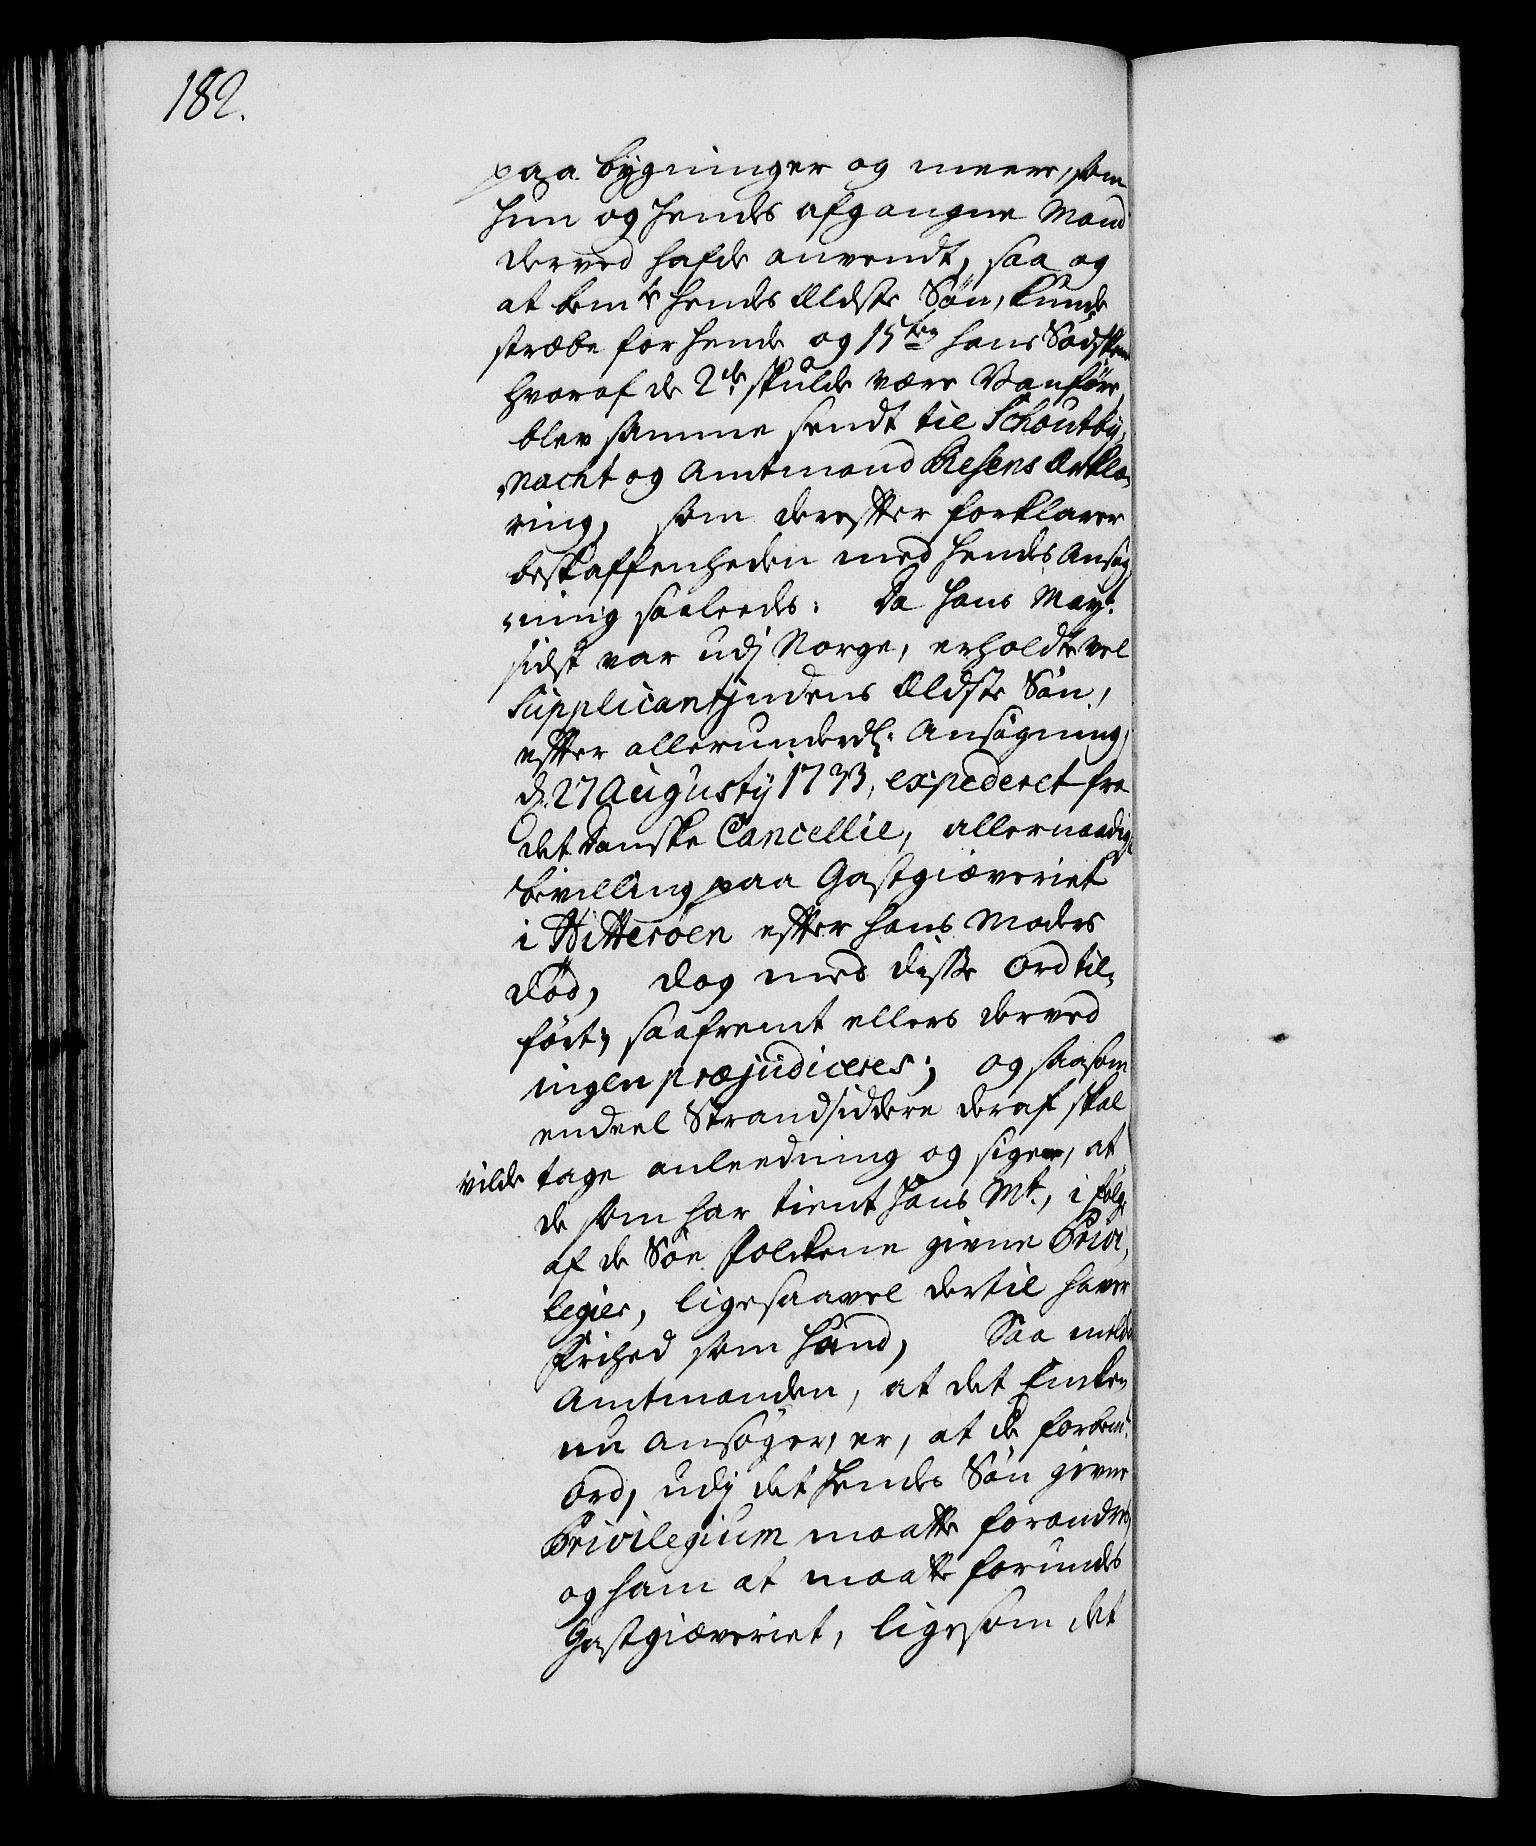 182.
paa bygninger og meere, som
hun og hendes afgangne Mand
derved hafde anvendt, saa og
at bemte hendes Eldste Søn, kunde
stræbe for hende og 15ten hans Sødsken
hvoraf de 2de skulde være Vanføre,
blev samme sendt til Schoutby¬
Nacht og Amtmand Riesens Erklæ¬
ring, som derefter forklarer
beskaffenheden med hendes Ansøg¬
ning saaleedes: Da Hans Mayt.
sidst var udj Norge, erholdte vel
Supplicantjndens Eldste Søn,
efter allerunderdl. Ansøgning,
d. 27 Augustij 1733, expederet fra
det Danske Cancellie, allernaadigst
bevilling paa Gastgiæveriet
i Hitterøen efter hans Moders
død, dog med disse Ord til¬
ført; saafremt ellers derved
ingen præjudiceres; og saasom
endeel Strandsiddere deraf skal
vilde tage anleedning og sigen, at
de som har tient Hans Mt., i følge
af de Søe Folckene givne Privi¬
legier, ligesaavel dertil haver
Frihed som Hand, Saa melder
Amtmanden, at det Encken
nu ansøger, er, at de forbemte
Ord, udj det hendes Søn givne
Privilegium maatte forandres,
og ham at maatte forundes
Gastgiæveriet, ligesom det